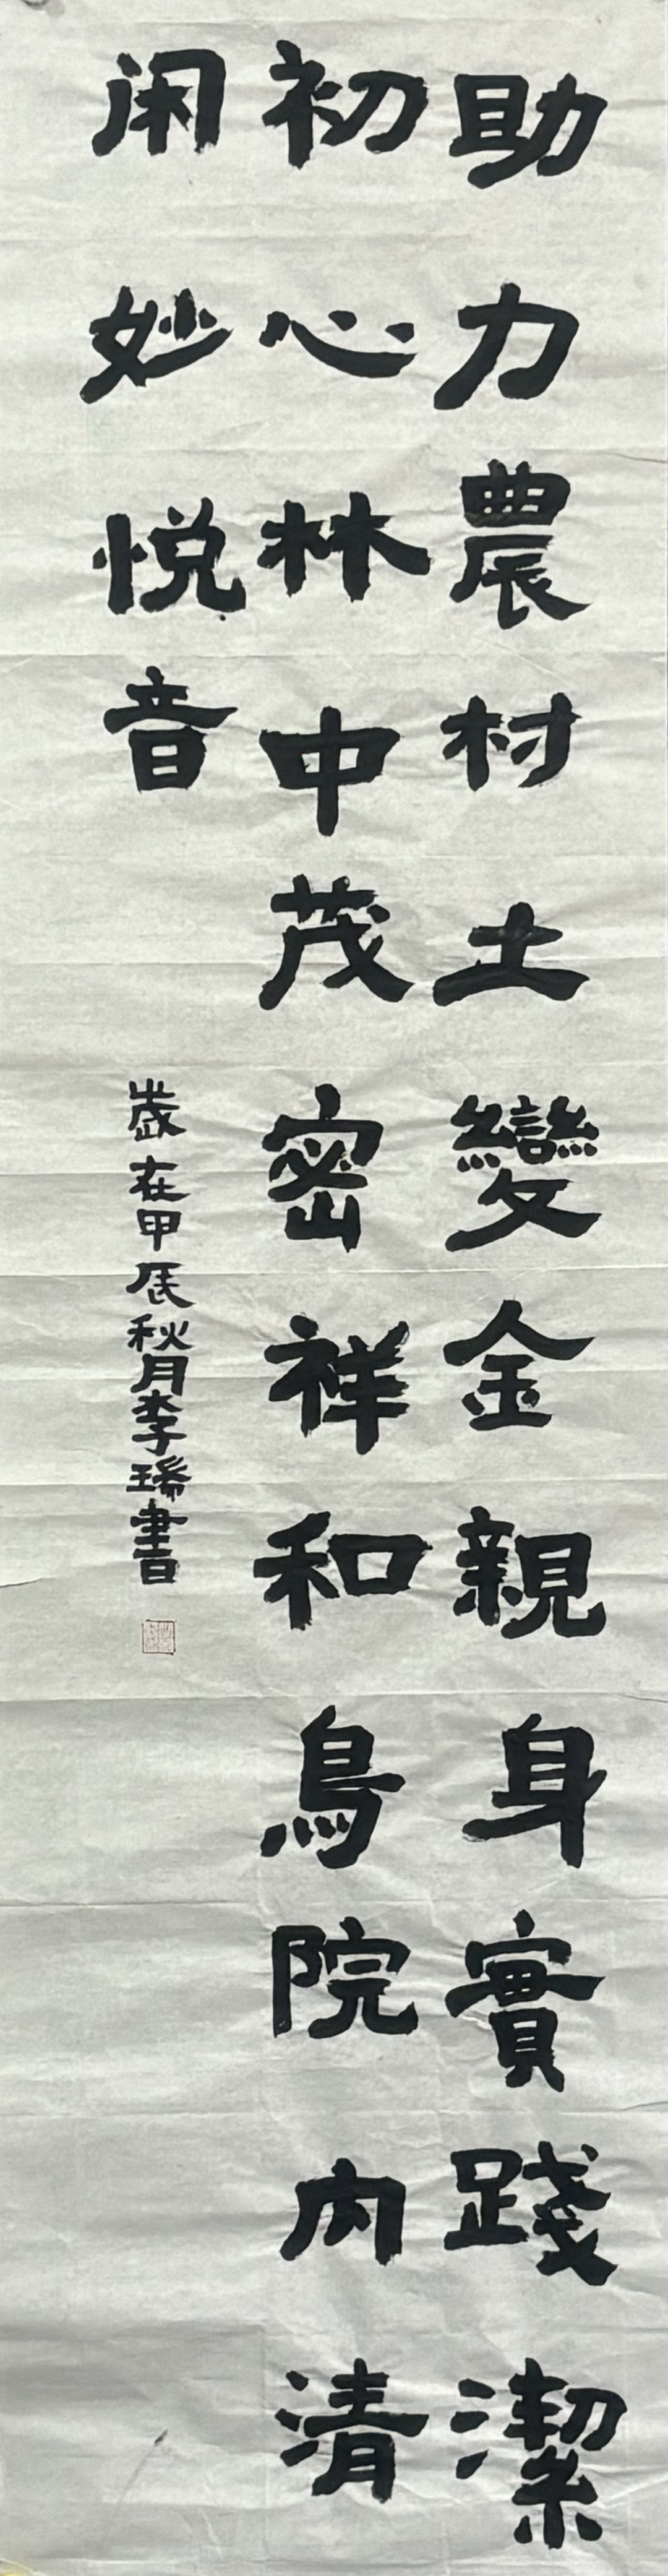 助力農村土變金親身實踐潔
初心林中茂密祥和鳥院内清
闲妙悦音
歲在甲辰秋月李瑞書